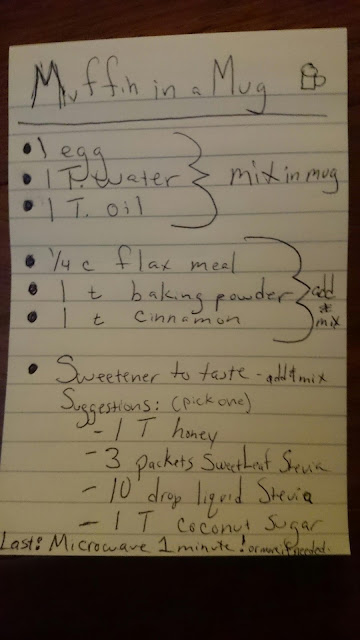 Muffin in a Mug
• 1 egg
• 1 T. water } mix in mug
• 1 T. oil
• 1/4 c flax meal
• 1 t baking powder } add & mix
• 1 t cinnamon
• Sweetener to taste - add & mix
Suggestions: (pick one)
- 1 T honey
- 3 packets SweetLeaf Stevia
- 10 drop liquid Stevia
- 1 T coconut sugar
Last: Microwave 1 minute! or more if needed.